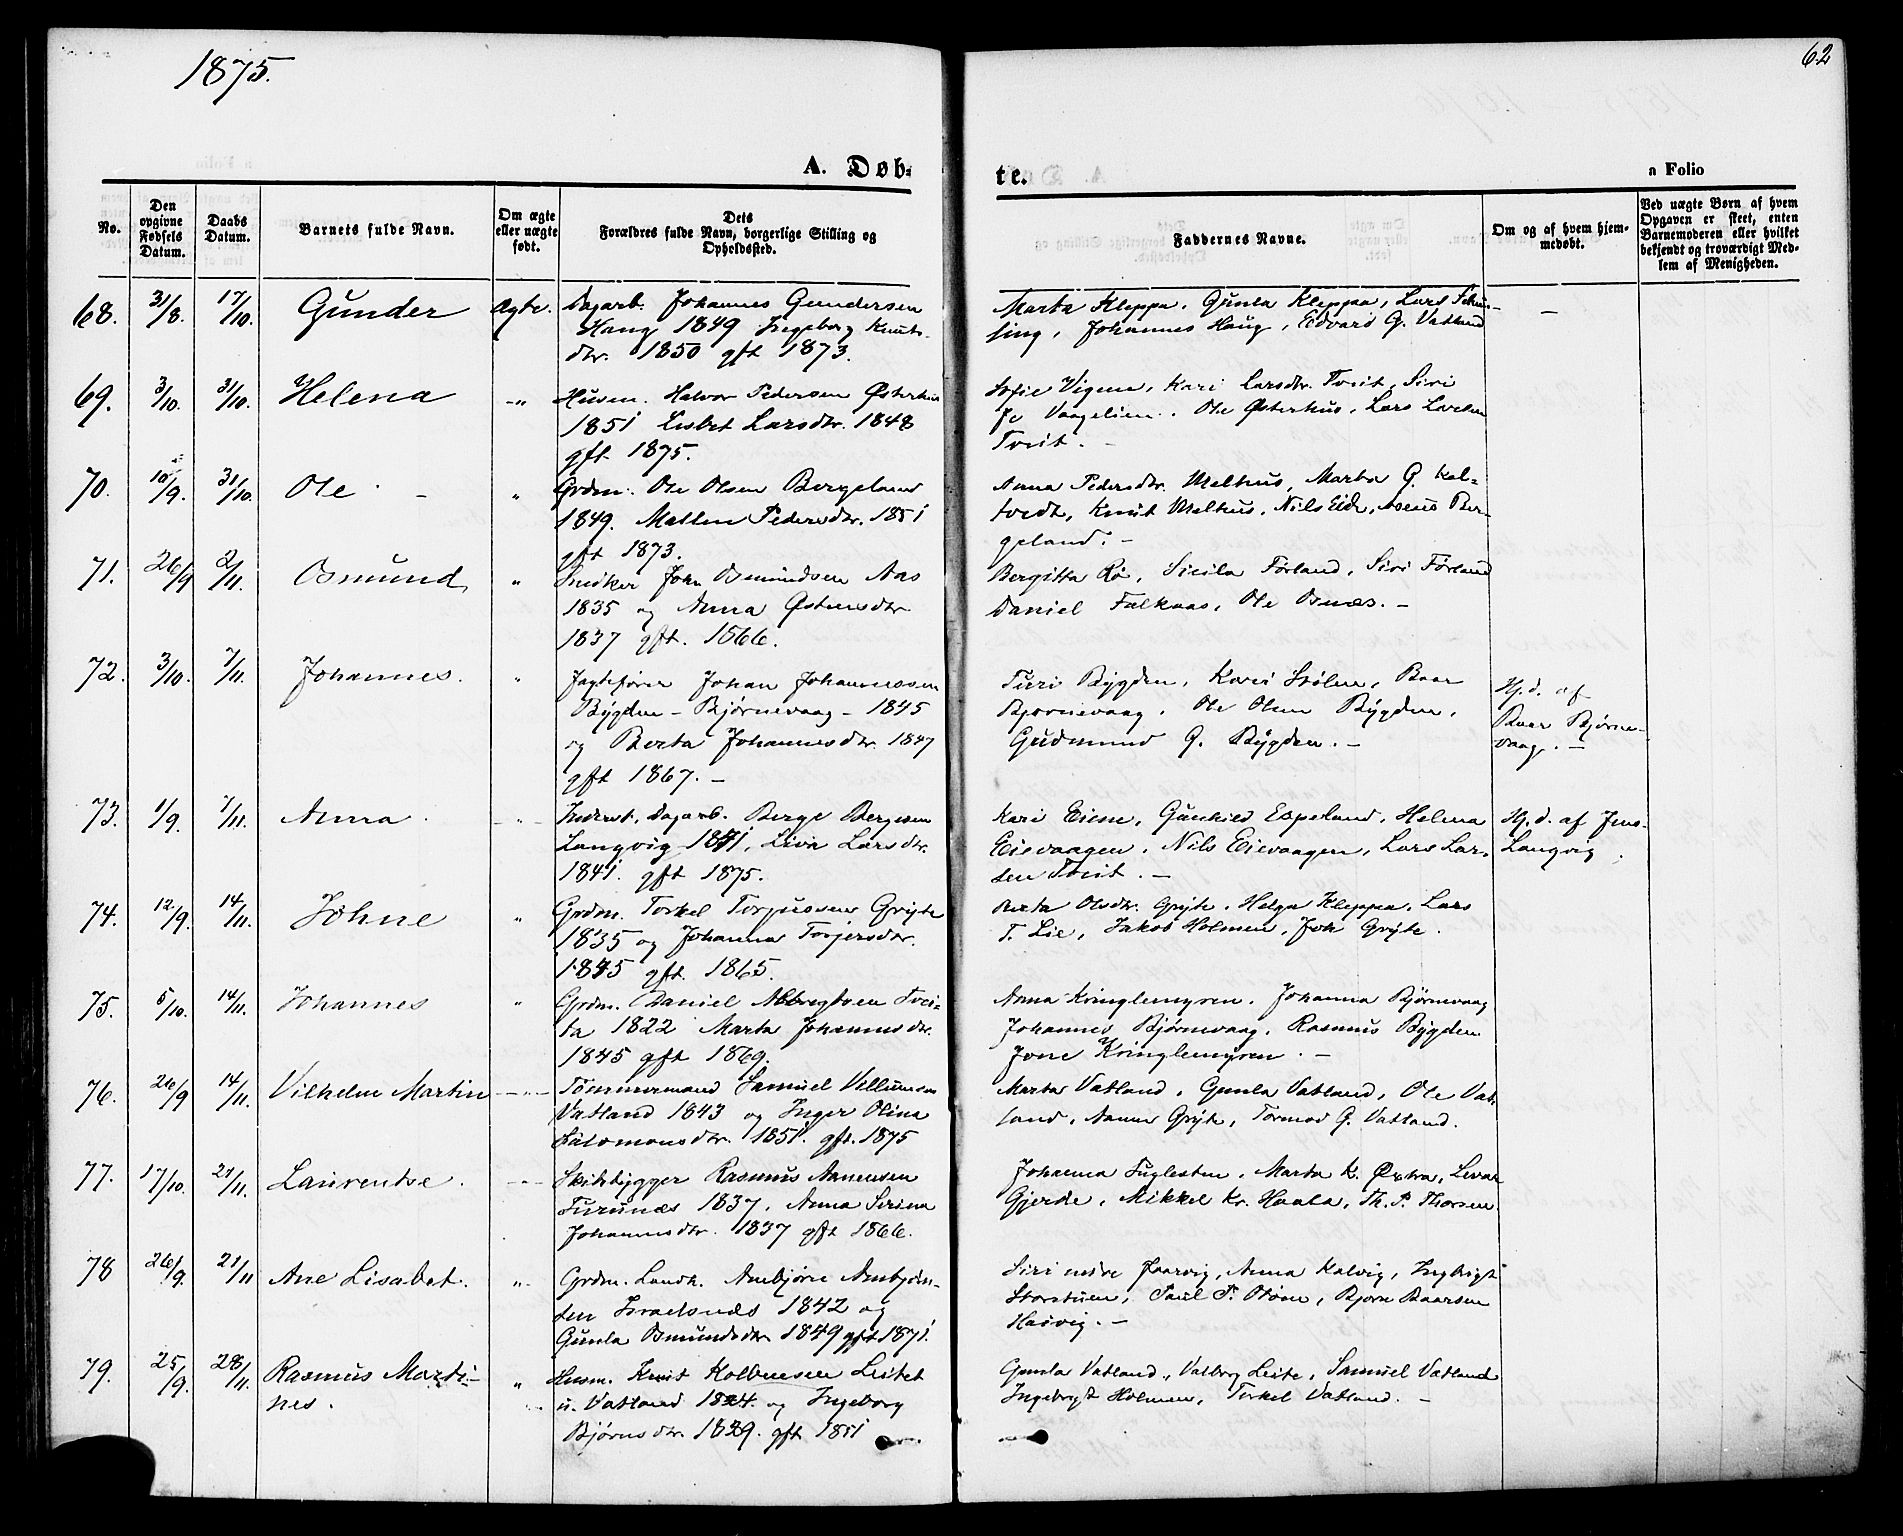 1875.
62
A. Døb-
te.
a Folio
No.
Den opgivne Fødsels Datum.
Daabs Datum.
Barnets fulde Navn.
Om ægte eller uægte født.
Dets Forældres fulde Navn, borgerlige Stilling og Opholdssted.
Faddernes Navne.
Om og af hvem hjemmedøbt.
Ved uægte Børn af hvem Opgaven er skeet, enten Barnemoderen eller hvilket bekjendt og troværdigt Medlem af Menigheden.
68. 31/8. 17/10. Gunder Ægte. Dagarb. Johannes Gundersen
Haug 1849 Ingeborg Knuts-
dtr. 1850 gft 1873.
Marta Kleppa, Gunla Kleppa, Lars
Johannes Haug, Edvard G. Vatland
–
69. 3/10. 31/10. Helena –„ Husm. Halvor Pedersen Østerhus
1851 Lisbet Larsdtr. 1848
gft 1875.
Sofie Vigene, Kari Larsdtr. Tveit, Siri
Ole Østerhus, Lars Larsen
Tveit. –
70. 10/9. 31/10. Ole. – „ Grdm. Ole Olsen Bergeland
1849. Mallene Pedersdtr. 1851
gft 1873.
Anna Pedersdtr. Melhus, Marta G. Kal-
tvedt, Knut Melhus, Nils Eide, Ber-
geland. –
71. 26/9 2/11. Osmund „ Snedker John Osmundsen Aas
1835 og Anna Østensdtr.
1837 gft. 1866.
Bergitta Rø, Sicila Førland, Siri Førland
Daniel Falkaas, Ole Osnæs. –
72. 3/10. 7/11. Johannes. „ Jagtefører Johan Johannessen
Bygden – Bjørnevaag – 1845
og Berta Johannesdtr. 1847
gft 1867. –
Turi Bygden, Kari Stølen, Baar
Bjørnevaag, Ole Olsen Bygden,
Gudmund G. Bygden. –
Hj.d. af
Baar Bjørne-
vaag. –
73. 1/9. 7/11. Anna. „ Inderst, Dagarb. Berge Bergesen
Langvig 1841, Liva Larsdtr.
1841. gft 1875.
Kari Eiene, Gunhild Espeland, Helena
Eievaagen, Nils Eievaagen, Lars Lar-
sen Tveit. –
Hj.d. af Jens
Langvig.
74. 12/9. 14/11. Johne „ Grdm. Torkel Torjussen Gryte
1835 og Johanna Torjersdtr.
1845 gft. 1865.
Berta Olsdtr. Gryte, Helga Kleppa, Lars
T. Lie, Jakob Holmen, Joh Gryte.
75. 5/10. 14/11. Johannes „ Grdm. Daniel Abbregtsen Tvei-
ta 1822 Marta Johannesdtr.
1845 gft 1869.
Anna Kringlemyren, Johanna Bjørnevaag
Johannes Bjørnevaag, Rasmus Bygden
Jone Kringlemyren. –
76. 26/9 14/11. Vilhelm Martin –„– Tømmermand Samuel Villumsen
Vatland 1843 og Inger Olina
Salomonsdtr. 1851. gft. 1875
Marta Vatland, Gunla Vatland, Ole Vat-
land, Gryte, Tormod G. Vatland.
77. 17/10. 21/11. Laurentse. –„– Skibbygger Rasmus Aanensen
Furunæs 1837, Anna Serina
Johannesdtr. 1837 gft 1866.
Johanna Fuglesten, Marta K. Øxtra,
Gjerde, Mikkel Kr. Haala, Th. P. Thorsen
78 26/9. 21/11 Ane Lisabet. „ Grdm. Landh. Anbjørn Anbjørn-
sen Israelsnæs 1842 og
Gunla Osmundsdtr 1849 gft 1871.
Siri Faarvig, Anna Kalvig, Ingbrigt
Storstuen, Paul P. Bjørn Baarsen
Haavig. –
79. 25/9. 28/11. Rasmus Marti-
nes. „ Husm. Knut Kolbensen Leitet
u. Vatland 1824. og Ingeborg
Bjørnsdtr. 1829. gft 1851
Gunla Vatland, Valborg Leite, Samuel Vatland
Ingebrigt Holmen, Torkel Vatland. –